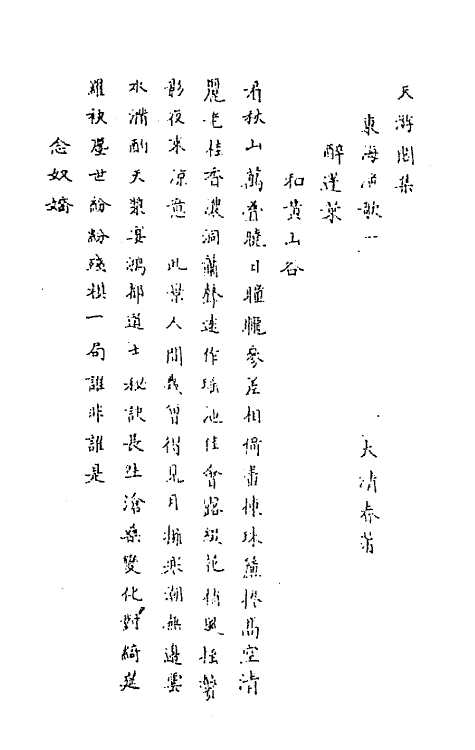 天游閣集
東海漁歌一 大清春著
醉蓬萊
和黃山谷
看秋山萬疊曉日曈曨參差相倚畫棟珠簾捲高空清
麗老桂香濃洞簫聲遠作瑤池佳會露綴花梢風搖鬢
影夜來涼意 此景人間幾曾得見月擁彩潮無邊雲
水滿酌天漿宴鴻都道士秘訣長生滄桑變化對綺筵
羅袂塵世紛紛殘棋一局誰非誰是
念奴嬌